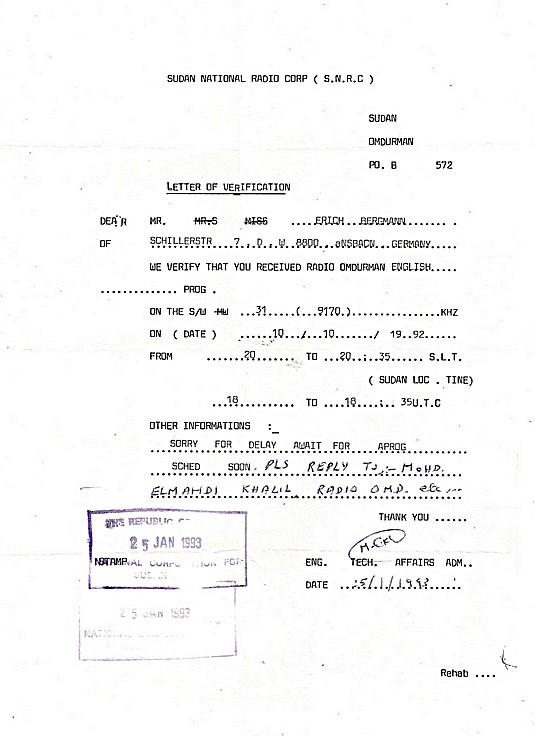 SUDAN NATIONAL RADIO CORP ( S.N.R.C )
SUDAN
OMDURMAN
PO. B 572
LETTER OF VERIFICATION
DEA'R MR. MR.S MISS ....ERICH .. BERGMANN....... .
OF SCHILLERSTR...7.,.D.,.W..8800..oNSBACN...GERMANY.....
WE VERIFY THAT YOU RECEIVED RADIO OMDURMAN ENGLISH.....
............. PROG .
ON THE S/W MW ...31.....(...9170.)...............KHZ
ON ( DATE ) ......10.../....10....../ 19..92......
FROM .......20....... TO ...20..:..35...... S.L.T.
( SUDAN LOC . TINE)
...18............ TO ....18....:.. 35U.T.C
OTHER INFORMATIONS :_
SORRY FOR DELAY AWAIT FOR APROG
SCHED SOON. PLS REPLY TO:- MOHD.
ELMAHDI KHALIL RADIO OMD. etc --
THANK YOU ......
ENG. TECH. AFFAIRS ADM..
DATE ..:5/1/1993.....
THE REPUBLIC
25 JAN 1993
STAMP
25 JAN 1993
NATIONAL
Rehab ....